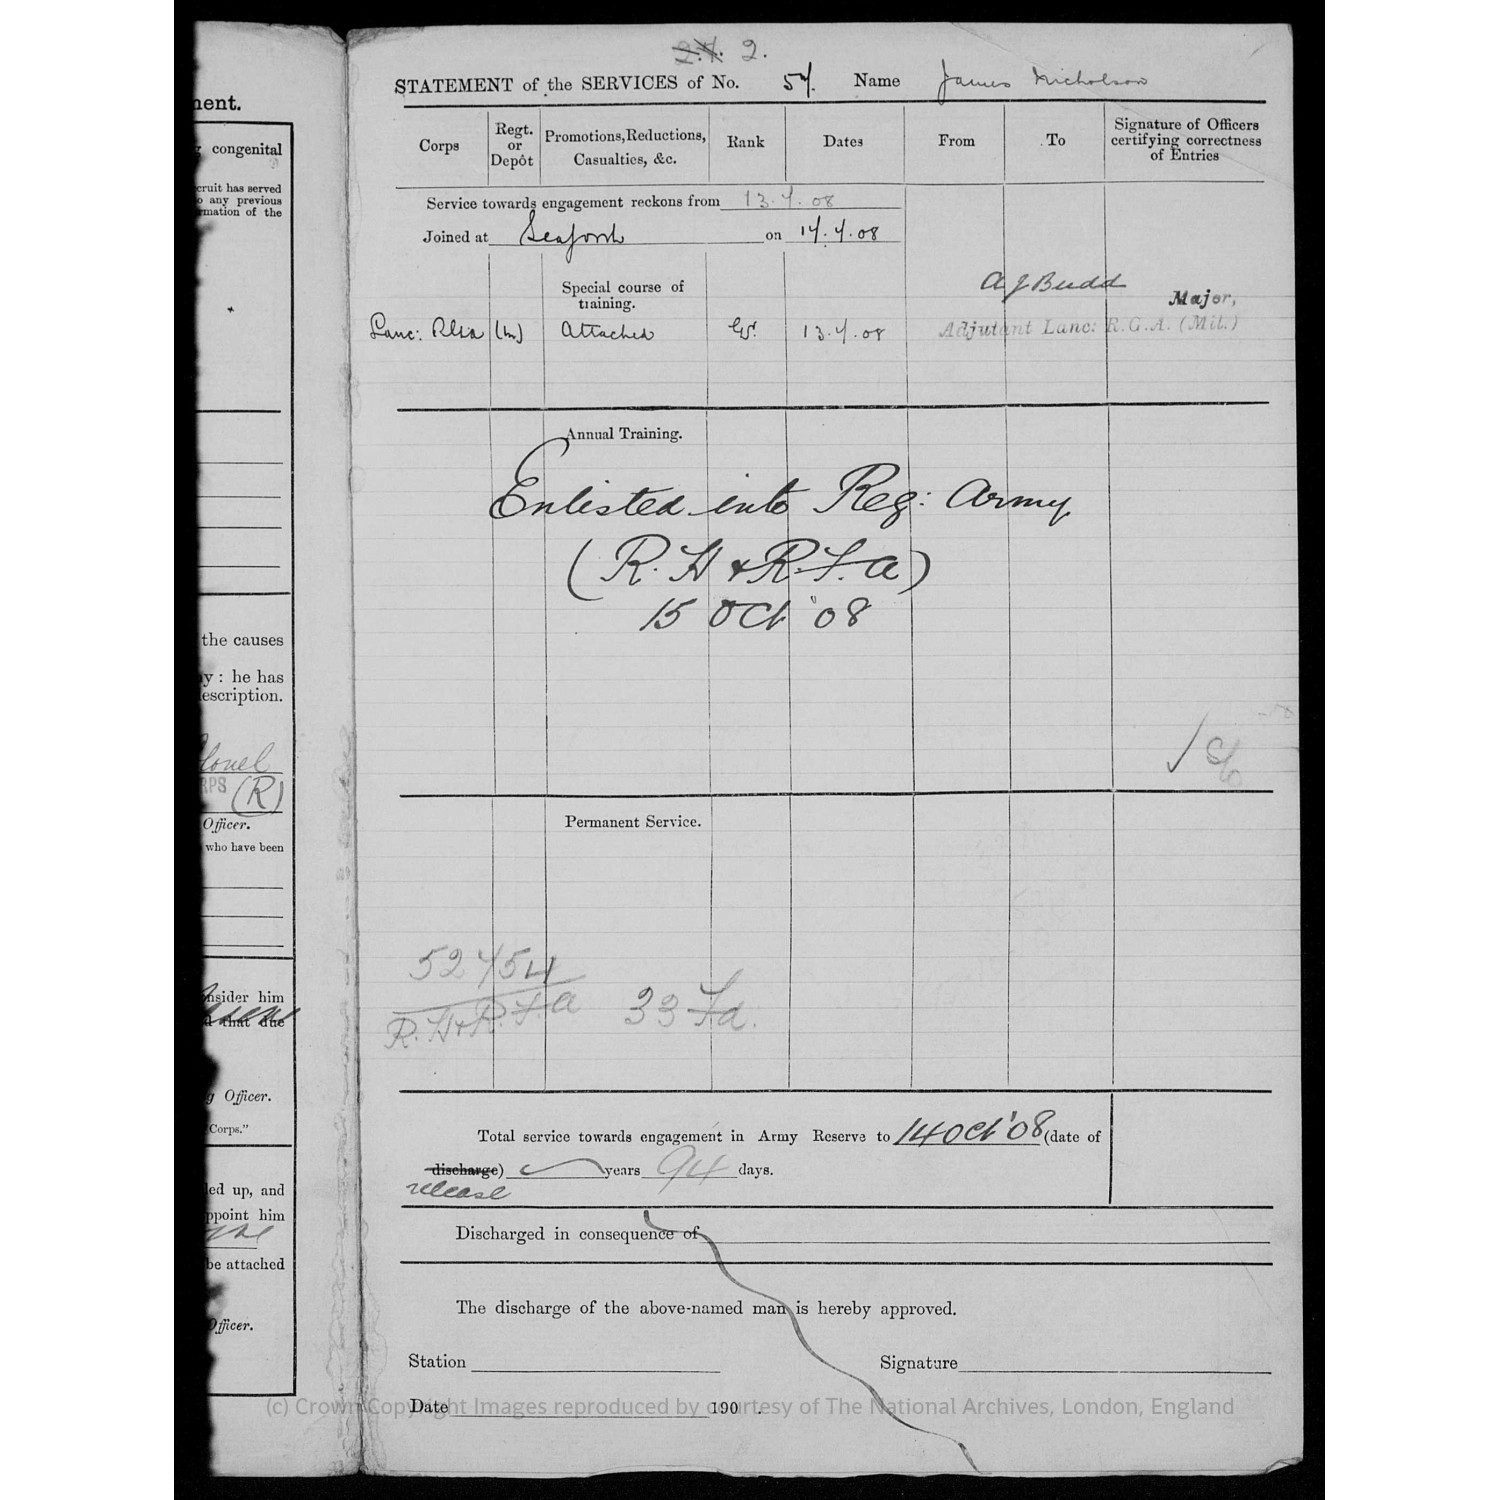 2.
STATEMENT of the SERVICES of No. 57. Name James Nicholson
Corps
Regt. or Depôt
Promotions, Reductions, Casualties, &c.
Rank
Dates
From
To
Signature of Officers certifying correctness of Entries
Service towards engagement reckons from 13.7.08
Joined at Seaforth on 17.7.08
Special course of
training.
A J Budd
Major,
Lanc: RGA (M) Attached Gr. 13.7.08
Adjutant Lanc: R.G.A. (Mil.)
Annual Training.
Enlisted into Reg: Army
(R.H & R.F.A)
15 Oct '08
Permanent Service.
52754
R.H & R.F.A 33 Fd.
Total service towards engagement in Army Reserve to 14 Oct '08 (date of
discharge) years 94 days.
release
Discharged in consequence of
The discharge of the above-named man is hereby approved.
Station Signature
Date 190 .
(c) Crown Copyright Images reproduced by courtesy of The National Archives, London, England
ment.
congenital
cruit has served
any previous
rmation of the
the causes
y : he has
escription.
lonel
RPS (R)
Officer.
who have been
nsider him
d that due
g Officer.
Corps."
led up, and
ppoint him
be attached
Officer.